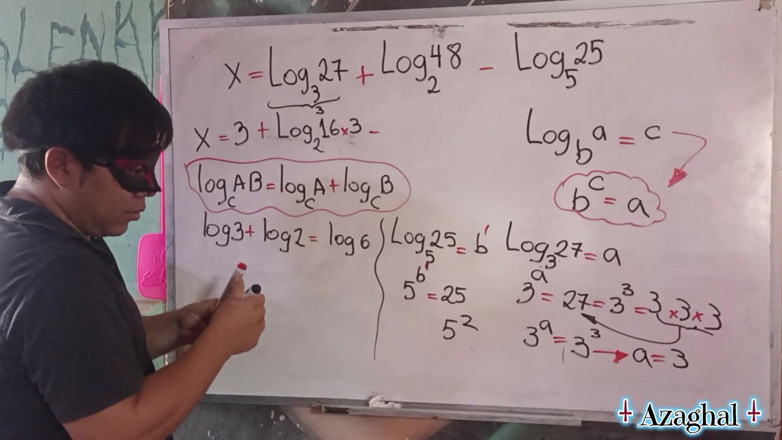 ALENK
X = Log₃27 + Log₂48 - Log₅25
X = 3 + Log₂16×3 -
Log_b a = c
b^c = a
log_c AB = log_c A + log_c B
log3 + log2 = log6
Log₅25 = b'
5^b' = 25
5²
Log₃27 = a
3^a = 27 = 3³ = 3×3×3
3^a = 3³ → a = 3
Azaghal